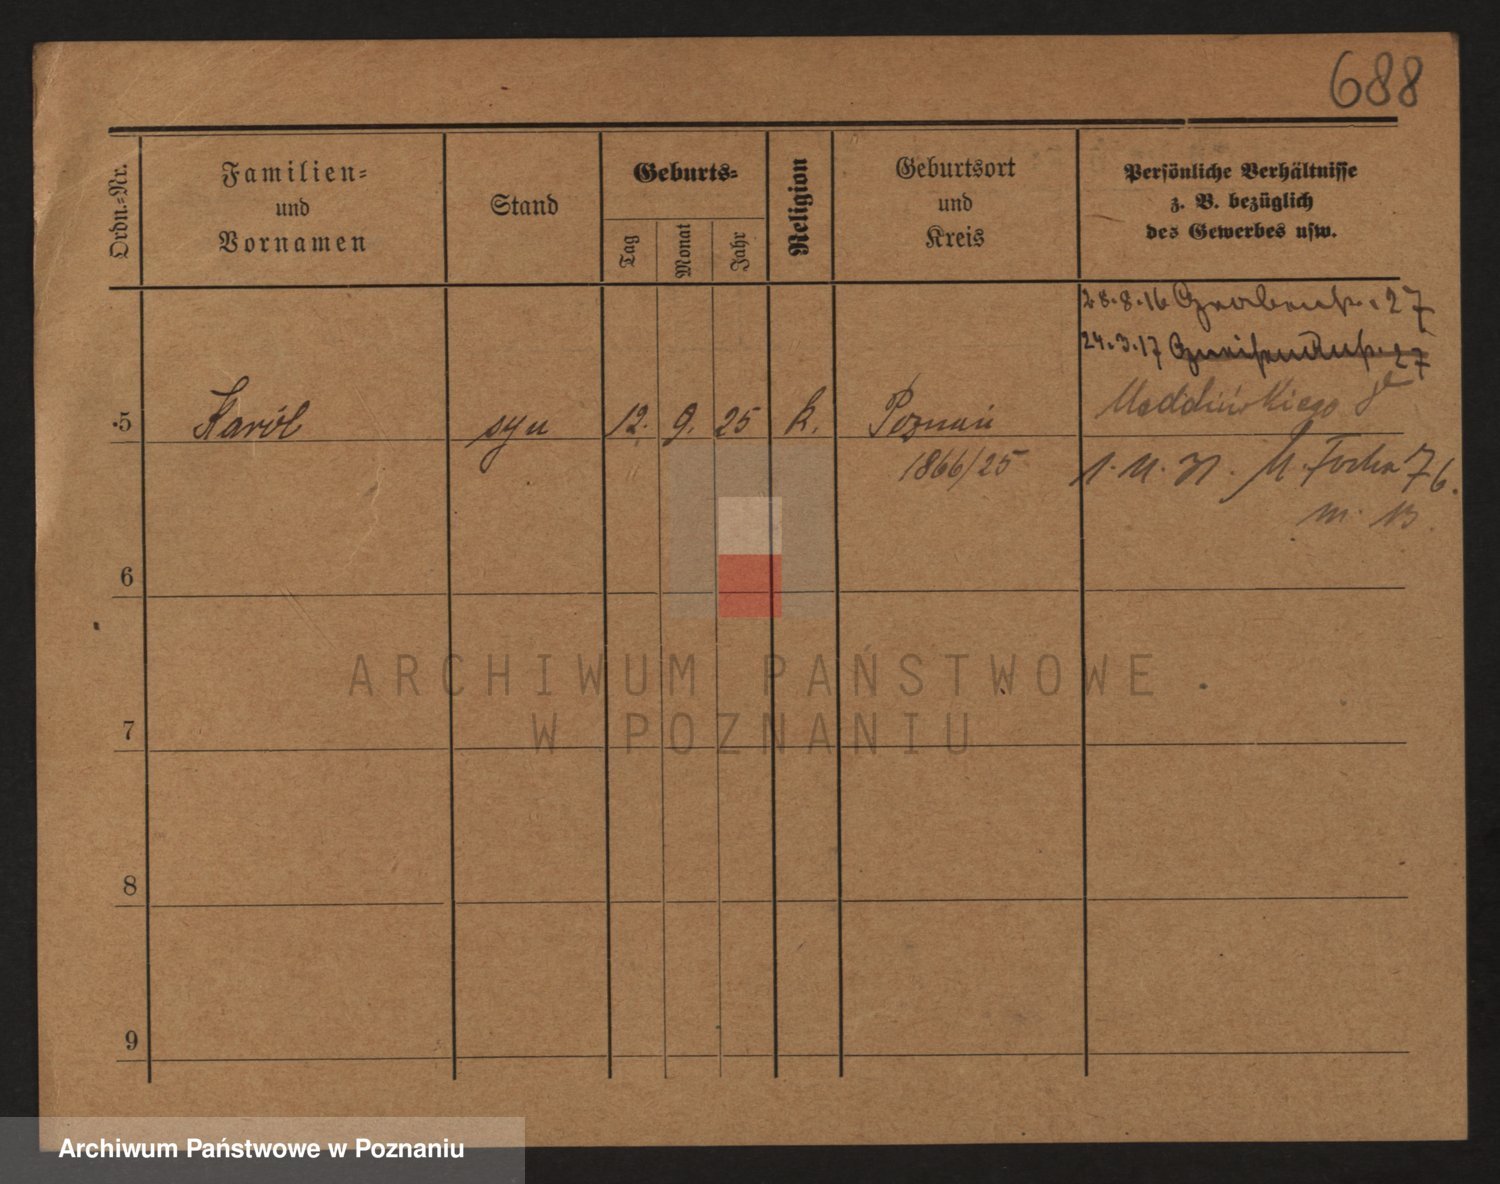 688
Ordn.-Nr.
Familien-
und
Vornamen
Stand
Geburts-
Tag
Monat
Jahr
Religion
Geburtsort
und
Kreis
Persönliche Verhältnisse
z. B. bezüglich
des Gewerbes usw.
28.8.16 Grabenstr. 27
24.3.17 27
5 Karól syn 12. 9. 25 k. Poznań
1866/25
Focha 76.
m. 13.
6
7
8
9
ARCHIWUM PAŃSTWOWE
W POZNANIU
Archiwum Państwowe w Poznaniu